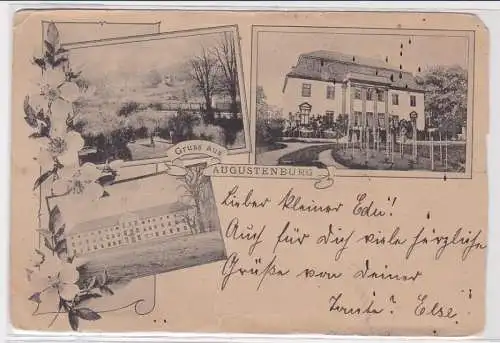 Gruss aus
AUGUSTENBURG
Lieber kleiner Edu!
Auch für Dich viele herzliche
Grüße von Deiner
Tante? Else.